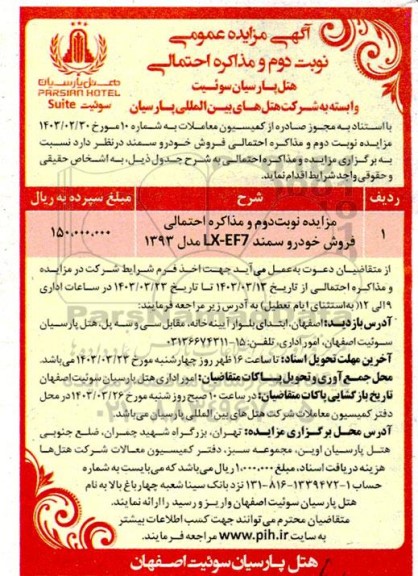 آگهی مزایده عمومی
نوبت دوم و مذاکره احتمالی
هتل پارسیان سوئیت
وابسته به شرکت هتل های بین المللی پارسیان
هتل پارسیان
PARSIAN HOTEL
سوئیت Suite
با استناد به مجوز صادره از کمیسیون معاملات به شماره ۱۰ مورخ ۱۴۰۳/۰۲/۳۰
مزایده نوبت دوم و مذاکره احتمالی فروش خودرو سمند در نظر دارد نسبت
به برگزاری مزایده و مذاکره احتمالی به شرح جدول ذیل، به اشخاص حقیقی
و حقوقی واجد شرایط اقدام نماید.
ردیف شرح مبلغ سپرده به ریال
۱ مزایده نوبت دوم و مذاکره احتمالی
فروش خودرو سمند LX-EF7 مدل ۱۳۹۳ ۱۵۰,۰۰۰,۰۰۰
از متقاضیان دعوت به عمل می آید جهت اخذ فرم شرایط شرکت در مزایده
و مذاکره احتمالی از تاریخ ۱۴۰۳/۰۳/۱۳ تا تاریخ ۱۴۰۳/۰۳/۲۳ در ساعات اداری
۹ الی ۱۲ (به استثنای ایام تعطیل) به آدرس زیر مراجعه فرمایند:
آدرس بازدید: اصفهان، ابتدای بلوار آیینه خانه، مقابل سی و سه پل، هتل پارسیان
سوئیت اصفهان، امور اداری، تلفن: ۱۵-۰۳۱۳۶۶۷۴۳۱۱
آخرین مهلت تحویل اسناد: تا ساعت ۱۶ ظهر روز چهارشنبه مورخ ۱۴۰۳/۰۳/۲۳ می باشد.
محل جمع آوری و تحویل پاکات متقاضیان: امور اداری هتل پارسیان سوئیت اصفهان
تاریخ بازگشایی پاکات متقاضیان: در ساعت ۱۰ صبح روز شنبه مورخ ۱۴۰۳/۰۳/۲۶ در محل
دفتر کمیسیون معاملات شرکت هتل های بین المللی پارسیان می باشد.
آدرس محل برگزاری مزایده: تهران، بزرگراه شهید چمران، ضلع جنوبی
هتل پارسیان اوین، مجموعه سبز، دفتر کمیسیون معالات شرکت هتل ها
هزینه دریافت اسناد، مبلغ ۱,۰۰۰,۰۰۰ ریال می باشد که می بایست به شماره
حساب ۱-۱۳۳۹۴۷۲-۸۱۶-۱۳۱ نزد بانک سینا شعبه چهارباغ بالا به نام
هتل پارسیان سوئیت اصفهان واریز و رسید را ارائه نمایند.
متقاضیان محترم می توانند جهت کسب اطلاعات بیشتر
به سایت www.pih.ir مراجعه فرمایند.
هتل پارسیان سوئیت اصفهان